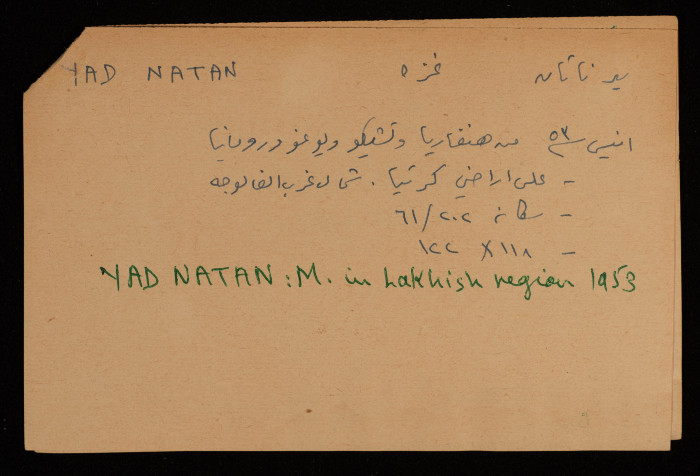 YAD NATAN غزه يد ناتان
انيس ٥٣ من هنغاريا وتشيكو ويوغو ورومانيا
- على اراضي كرتيا . شمال غرب الفالوجه
- سكانه ٢٠٢/٦١
- ١١٨ X ١٢٢
YAD NATAN : M. in Lakhish region 1953